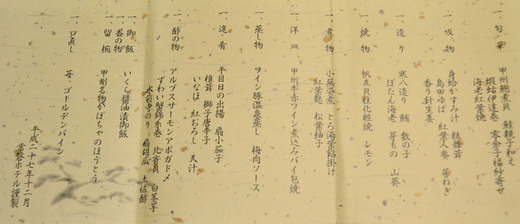 一、旬菜
甲州鮑煮貝 鮭親子和え
蝦蛄伊達巻 零余子福紗寄せ
海老紅葉焼
一、吸物
身鱈かすみ汁 粒蕎麦
島田ゆば 紅葉人参 芽ねぎ
香り針生姜
一、造り
寒八造り 鮪 数の子
ぼたん海老 芽もの 山葵
一、焼物
帆立貝柱化粧焼 レモン
一、煮物
小蕪含煮 とろ湯葉餡掛け
紅葉麩 松葉柚子
一、洋皿
甲州牛赤ワイン煮込みパイ包焼
一、蒸し物
ワイン豚温泉蒸し 梅肉ソース
一、進肴
平目目の出揚 扇小茄子
椎茸 獅子唐辛子
いなほ 紅おろし 天汁
一、酢の物
アルプスサーモンアボガドメ
ずわい蟹錦糸巻 北寄貝 白茎芋
水前寺のり 扇胡瓜 土佐酢
一、御飯
いくら醤油漬御飯
一、番の物
一、留椀
甲州名物かぼちゃのほうとう
一、口直し
苺 ゴールデンパイン
平成二十七年十二月
常磐ホテル謹製